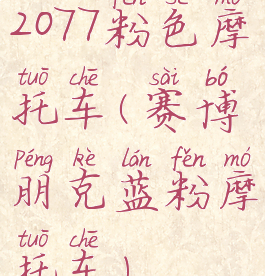 fěn sè mó
2077粉色摩
tuō chē sài bó
托车(赛博
péng kè lán fěn mó
朋克蓝粉摩
tuō chē
托车)